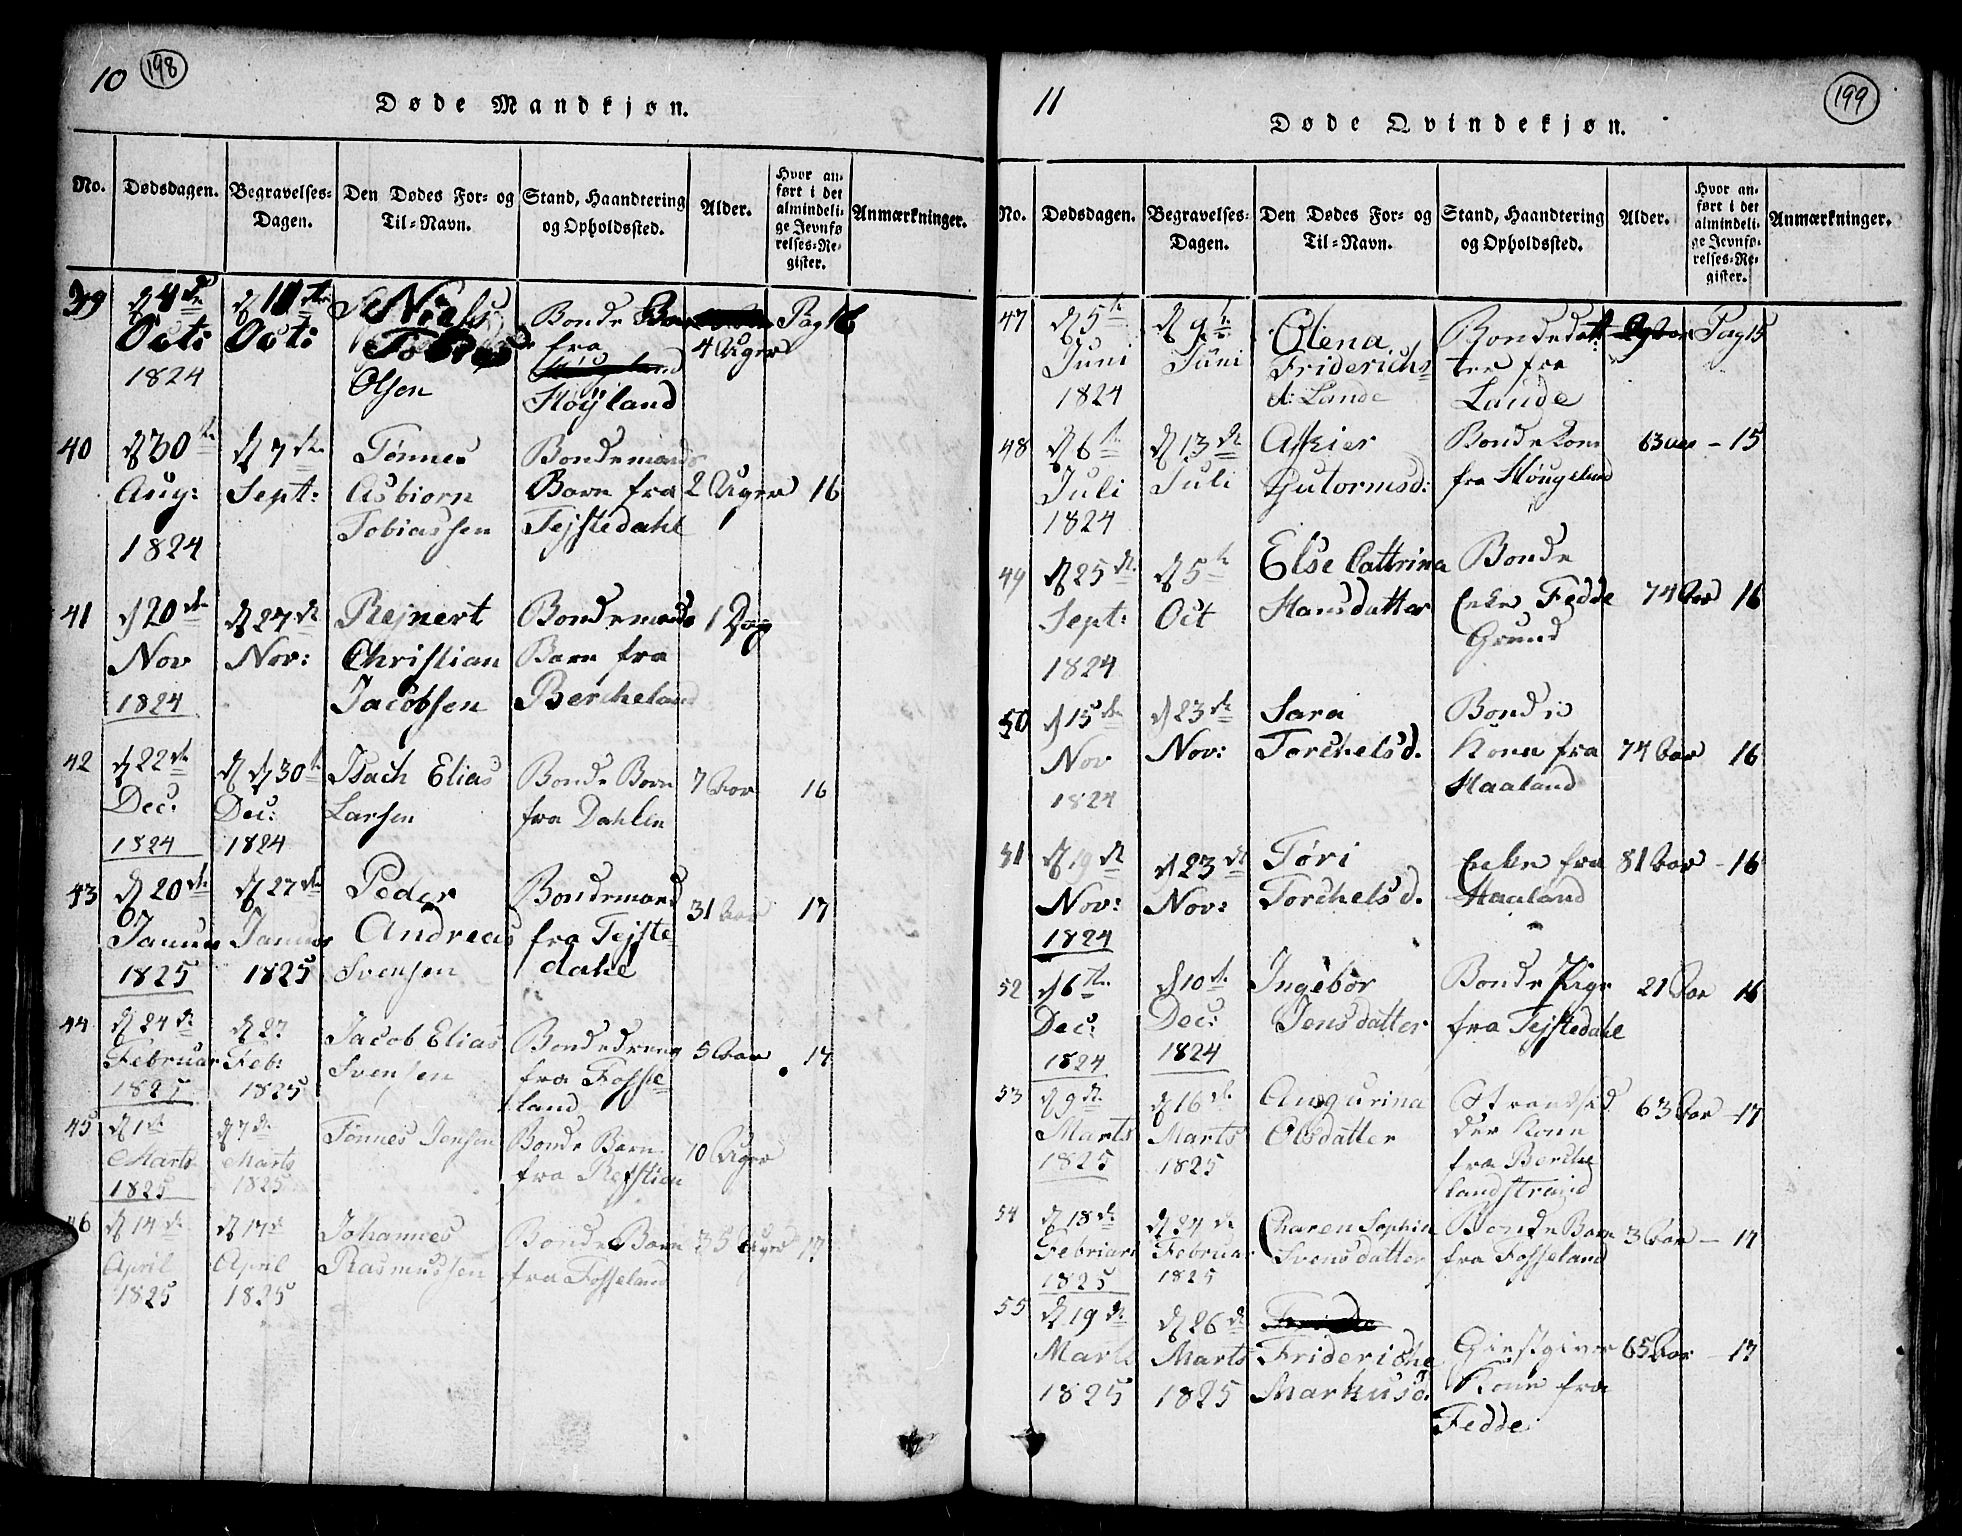 10 198
Døde Mandkjøn.
No. Dødsdagen. Begravelses-Dagen. Den Dødes For- og Til-Navn. Stand, Haandtering og Opholdssted. Alder. Hvor anført i det almindelige Jevnførelses-Register. Anmærkninger.
39 d 4de Oct: 1824
d 11te Oct:
Niels Tobias Olsen
Bonde Barn fra Høyland
4 Uger
Pag 16
40 d 30te Aug: 1824
d 7de Sept:
Tønnes Asbiorn Tobiassen
Bondemands Barn fra Tejstedahl
2 Uger
16
41 d 20de Nov 1824
d 27de Nov:
Rejnert Christian Jacobsen
Bondemands Barn fra Bercheland
1 Dag
42 d 22de Dec: 1824
d 30te Dec: 1824
Isach Elias Larsen
Bonde Barn fra Dahlen
7 Aar
16
43 d 20de Januar 1825
d 27de Januar 1825
Peder Andreas Svensen
Bondemand fra Tejstedahl
31 Aar
17
44 d 24de Februar 1825
d 27 Feb: 1825
Jacob Elias Svensen
Bondedreng fra Fosseland
5 Aar
17
45 d 1ste Marts 1825
d 7de Marts 1825
Tønnes Jensen
Bonde Barn fra Refstien
10 Uger
46 d 14de April 1825
d 17de April 1825
Johannes Rasmussen
Bonde Barn fra Fosseland
35 Uger
17
11 199
Døde Qvindekjøn.
No. Dødsdagen. Begravelses-Dagen. Den Dødes For- og Til-Navn. Stand, Haandtering og Opholdssted. Alder. Hvor anført i det almindelige Jevnførelses-Register. Anmærkninger.
47 d 5te Juni 1824
d 9de Juni
Olena Friderichs=d: Lande
Bondedatter fra Lande
Pag 15
48 d 6te Juli 1824
d 13de Juli
Askier Gutormsd:
Bondekone fra Høugeland
63 Aar – 15
49 d 25de Sept: 1824
d 5te Oct
Else Cattrina Hansdatter
Bonde Enke Fedde Grund
74 Aar 16
50 d 15de Nov 1824
d 23de Nov:
Sara Torchelsd.
Bonde Kone fra Haaland
74 Aar 16
51 d 19de Nov: 1824
d 23de Nov:
Tøri Torchelsd.
Enke fra Haaland
81 Aar – 16
52 d 6te Dec: 1824
d 10de Dec: 1824
Ingebor Jensdatter
Bonde Pige fra Tejstedahl
21 Aar 16
53 d 9de Marts 1825
d 16de Marts 1825
Angurina Olsdatter
Strandsidder Kone fra Berchelandstrand
63 Aar – 17
54 d 18de Februar 1825
d 24de Februar 1825
Charen Sophia Svensdatter
Bonde Barn fra Fosseland
3 Aar – 17
55 d 19de Marts 1825
d 26de Marts 1825
Frideriche Markusd.
Giestgiver Kone fra Fedde
65 Aar – 17